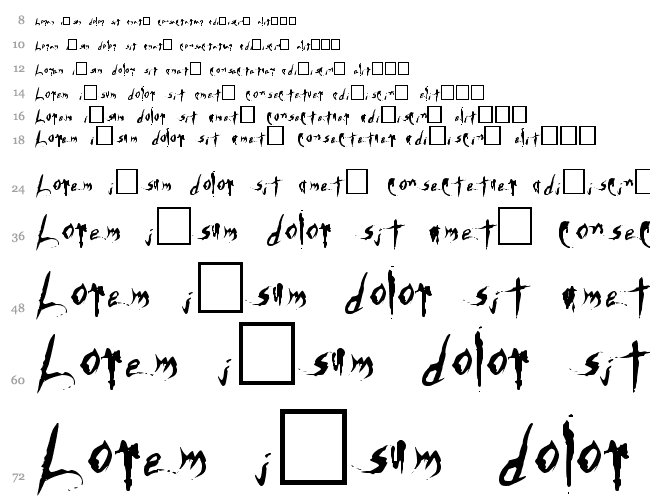 8 Lorem i□sum dolor sit amet□ consectetuer adi□iscin□ elit□□□
10 Lorem i□sum dolor sit amet□ consectetuer adi□iscin□ elit□□□
12 Lorem i□sum dolor sit amet□ consectetuer adi□iscin□ elit□□□
14 Lorem i□sum dolor sit amet□ consectetuer adi□iscin□ elit□□□
16 Lorem i□sum dolor sit amet□ consectetuer adi□iscin□ elit□□□
18 Lorem i□sum dolor sit amet□ consectetuer adi□iscin□ elit□□□
24 Lorem i□sum dolor sit amet□ consectetuer adi□iscin□
36 Lorem i□sum dolor sit amet□ consec
48 Lorem i□sum dolor sit amet
60 Lorem i□sum dolor sit
72 Lorem i□sum dolor